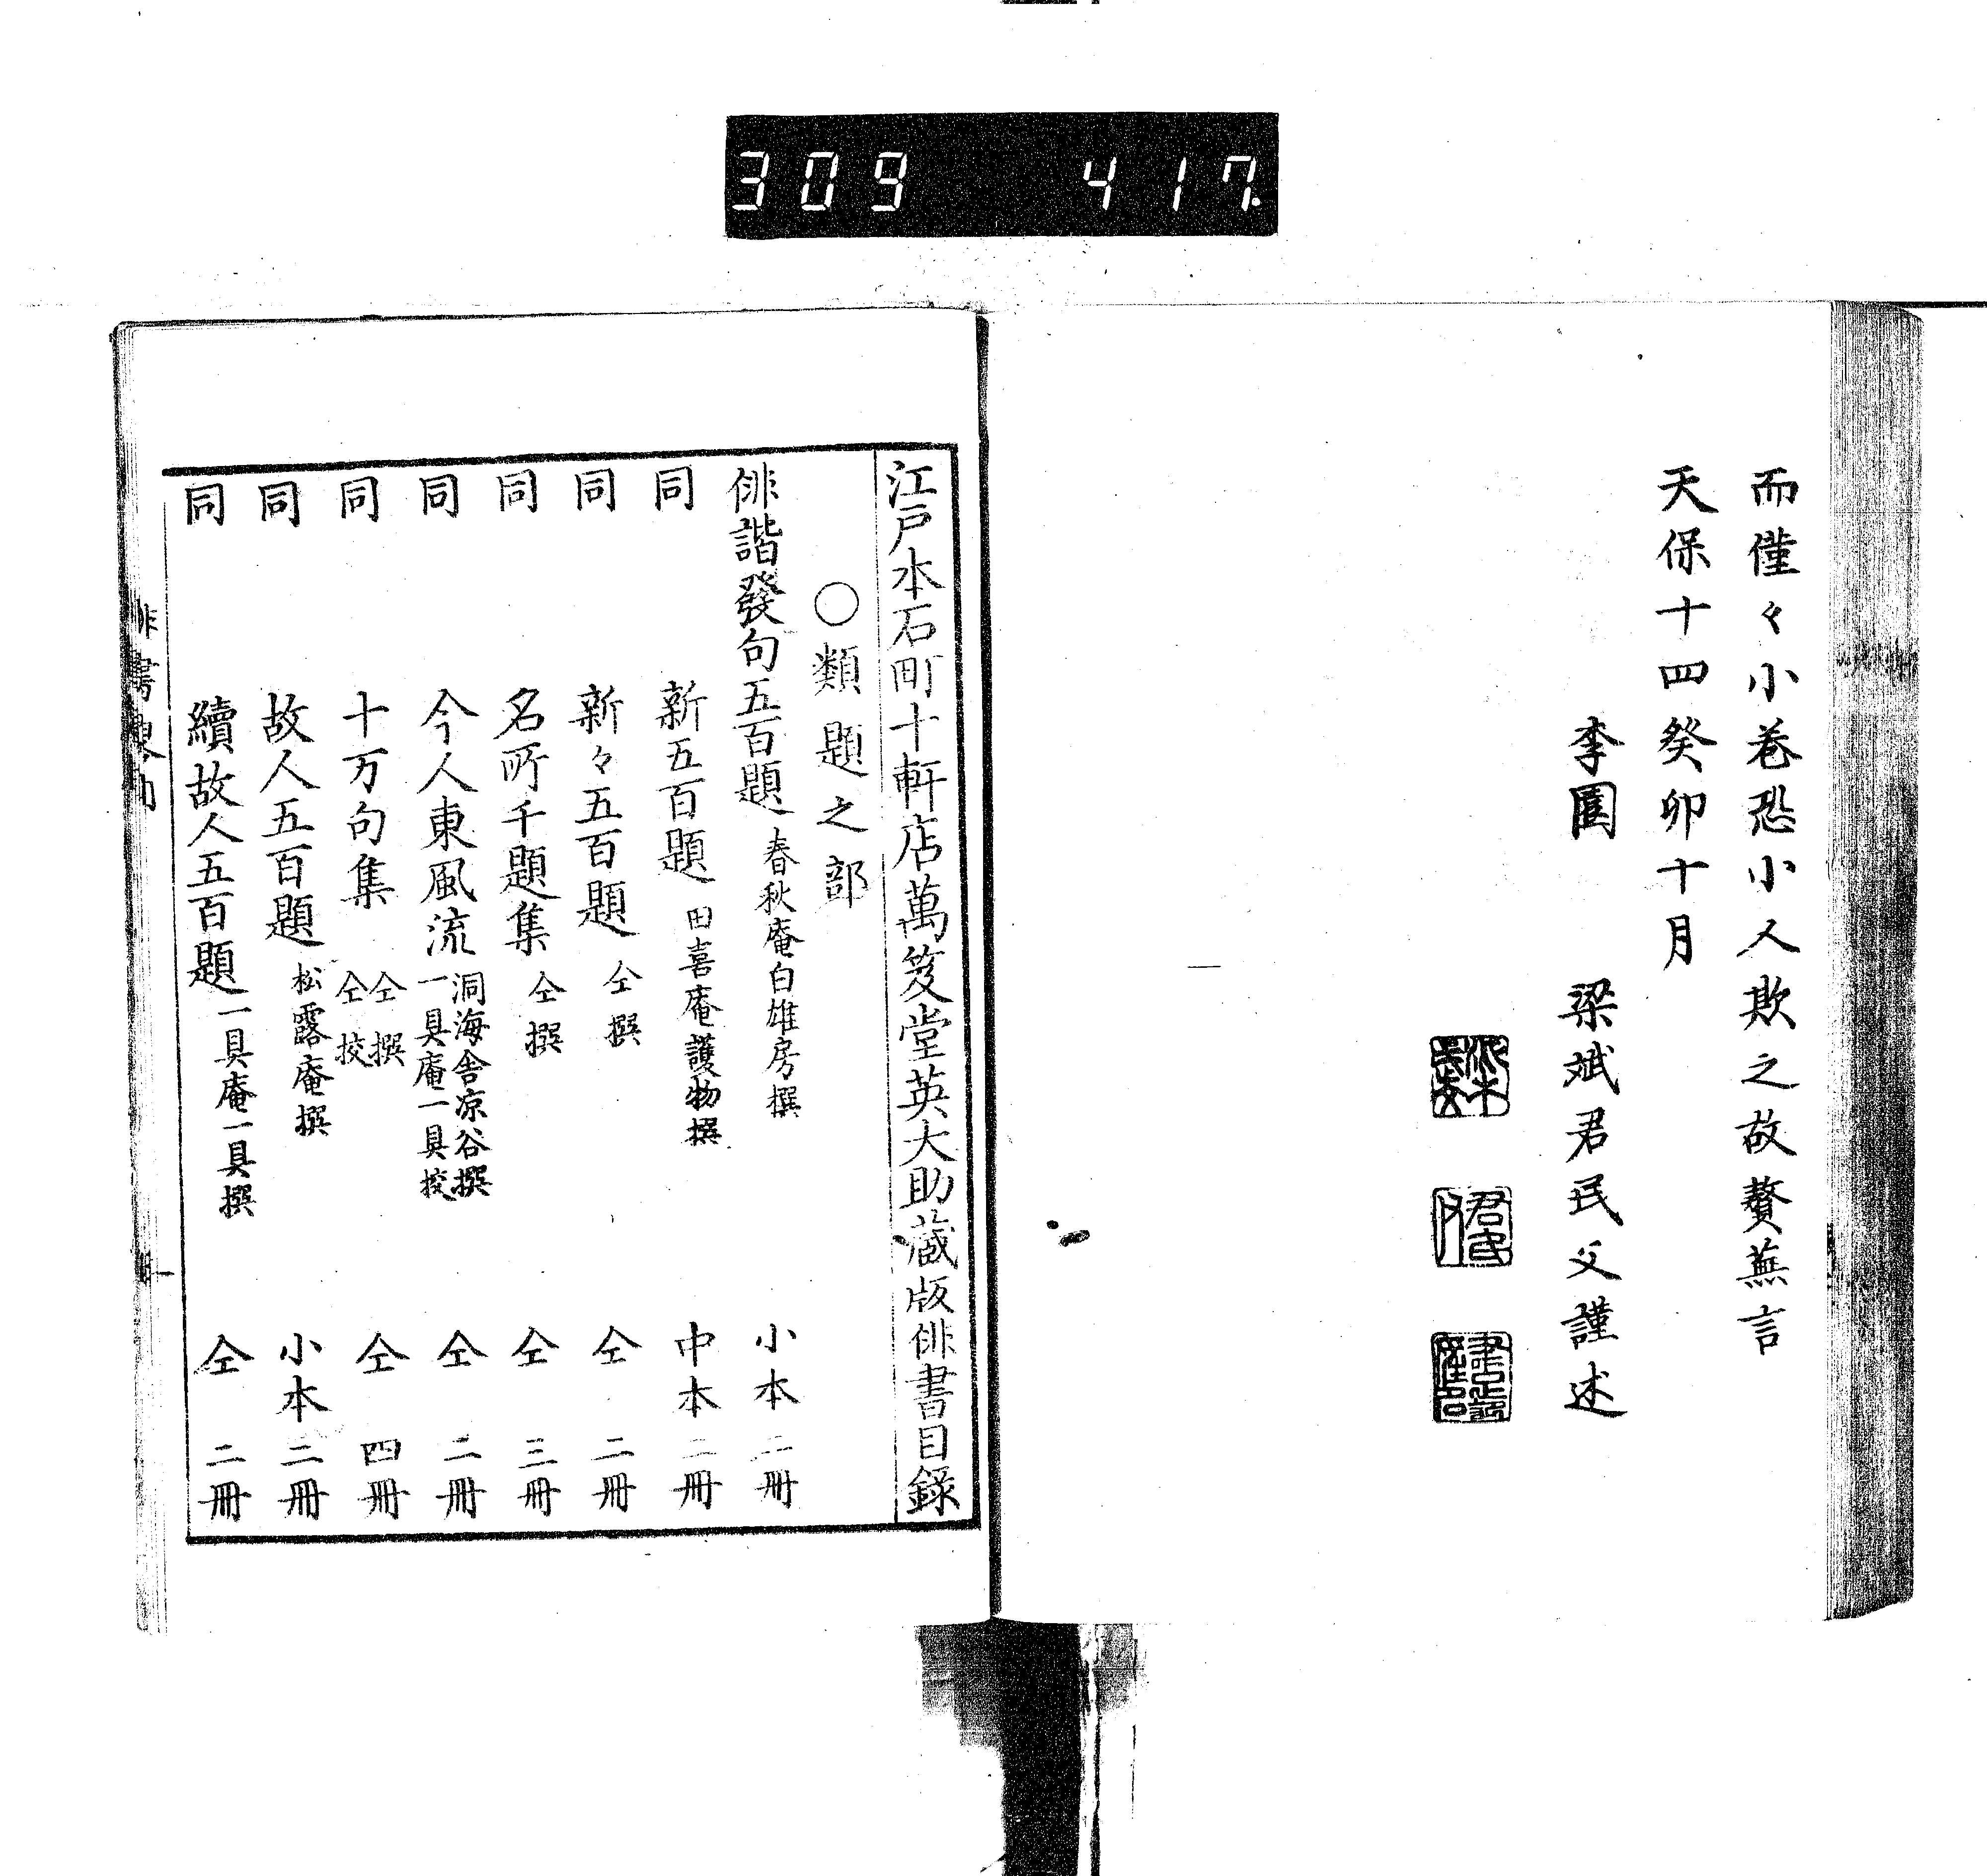 309 417.
而僅々小巻恐小人欺之故贅蕪言
天保十四癸卯十月
李園 梁斌君民父謹述
江戸本石町十軒店萬笈堂英大助蔵版俳書目録
〇類題之部
俳諧發句五百題 春秋庵白雄房撰 小本 二冊
同 新五百題 田喜庵護物撰 中本 二冊
同 新々五百題 仝撰 仝 二冊
同 名所千題集 仝撰 仝 三冊
同 今人東風流 洞海舎凉谷撰 一具庵一具挍 仝 二冊
同 十万句集 仝撰 仝挍 仝 四冊
同 故人五百題 松露庵撰 小本 二冊
同 續故人五百題 一具庵一具撰 仝 二冊